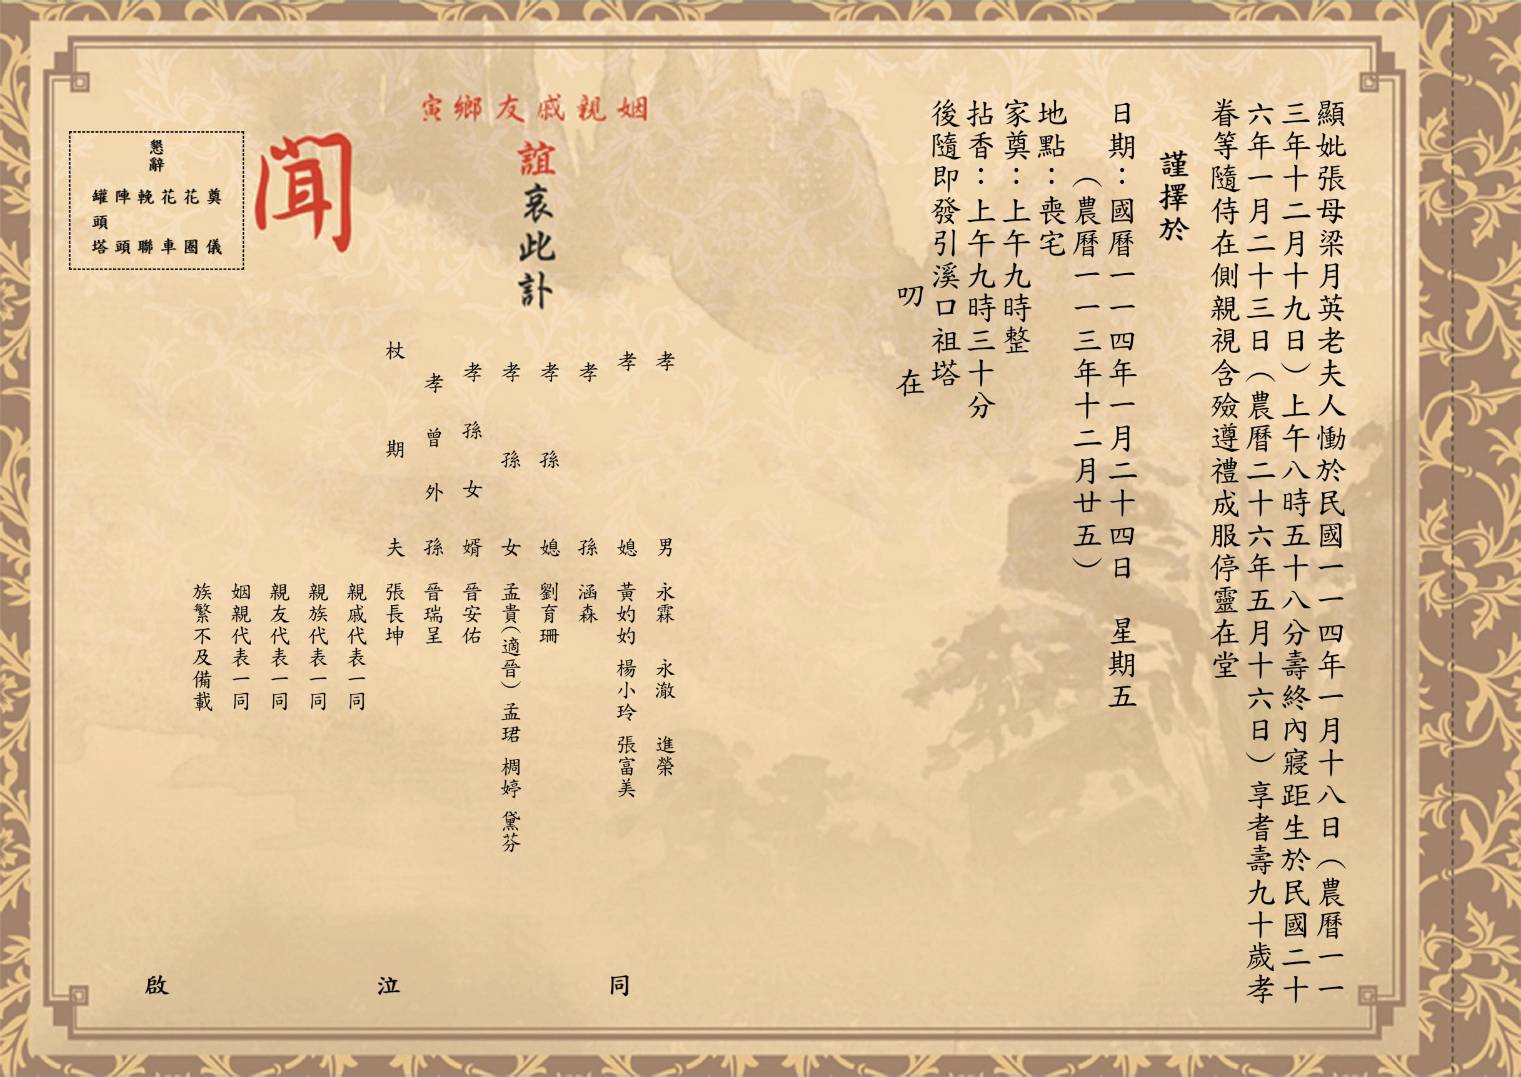 顯妣張母梁月英老夫人慟於民國一一四年一月十八日（農曆一一
三年十二月十九日）上午八時五十八分壽終內寢距生於民國二十
六年一月二十三日（農曆二十六年五月十六日）享耆壽九十歲孝
眷等隨侍在側親視含殮遵禮成服停靈在堂
謹擇於
日期：國曆一一四年一月二十四日 星期五
（農曆一一三年十二月廿五）
地點：喪宅
家奠：上午九時整
拈香：上午九時三十分
後隨即發引溪口祖塔
叨在
姻親戚友鄉寅
誼哀此訃
聞
孝男 永霖 永澈 進榮
孝媳 黃妁妁 楊小玲 張富美
孝孫 涵森
孝孫媳 劉育珊
孝孫女 孟貴（適晉） 孟珺 椆婷 黛芬
孝孫女婿 晉安佑
孝曾外孫 晉瑞呈
杖期夫 張長坤
親戚代表一同
親族代表一同
親友代表一同
姻親代表一同
族繁不及備載
同泣啟
懇辭
奠儀
花圈
花車
輓聯
陣頭
罐頭塔